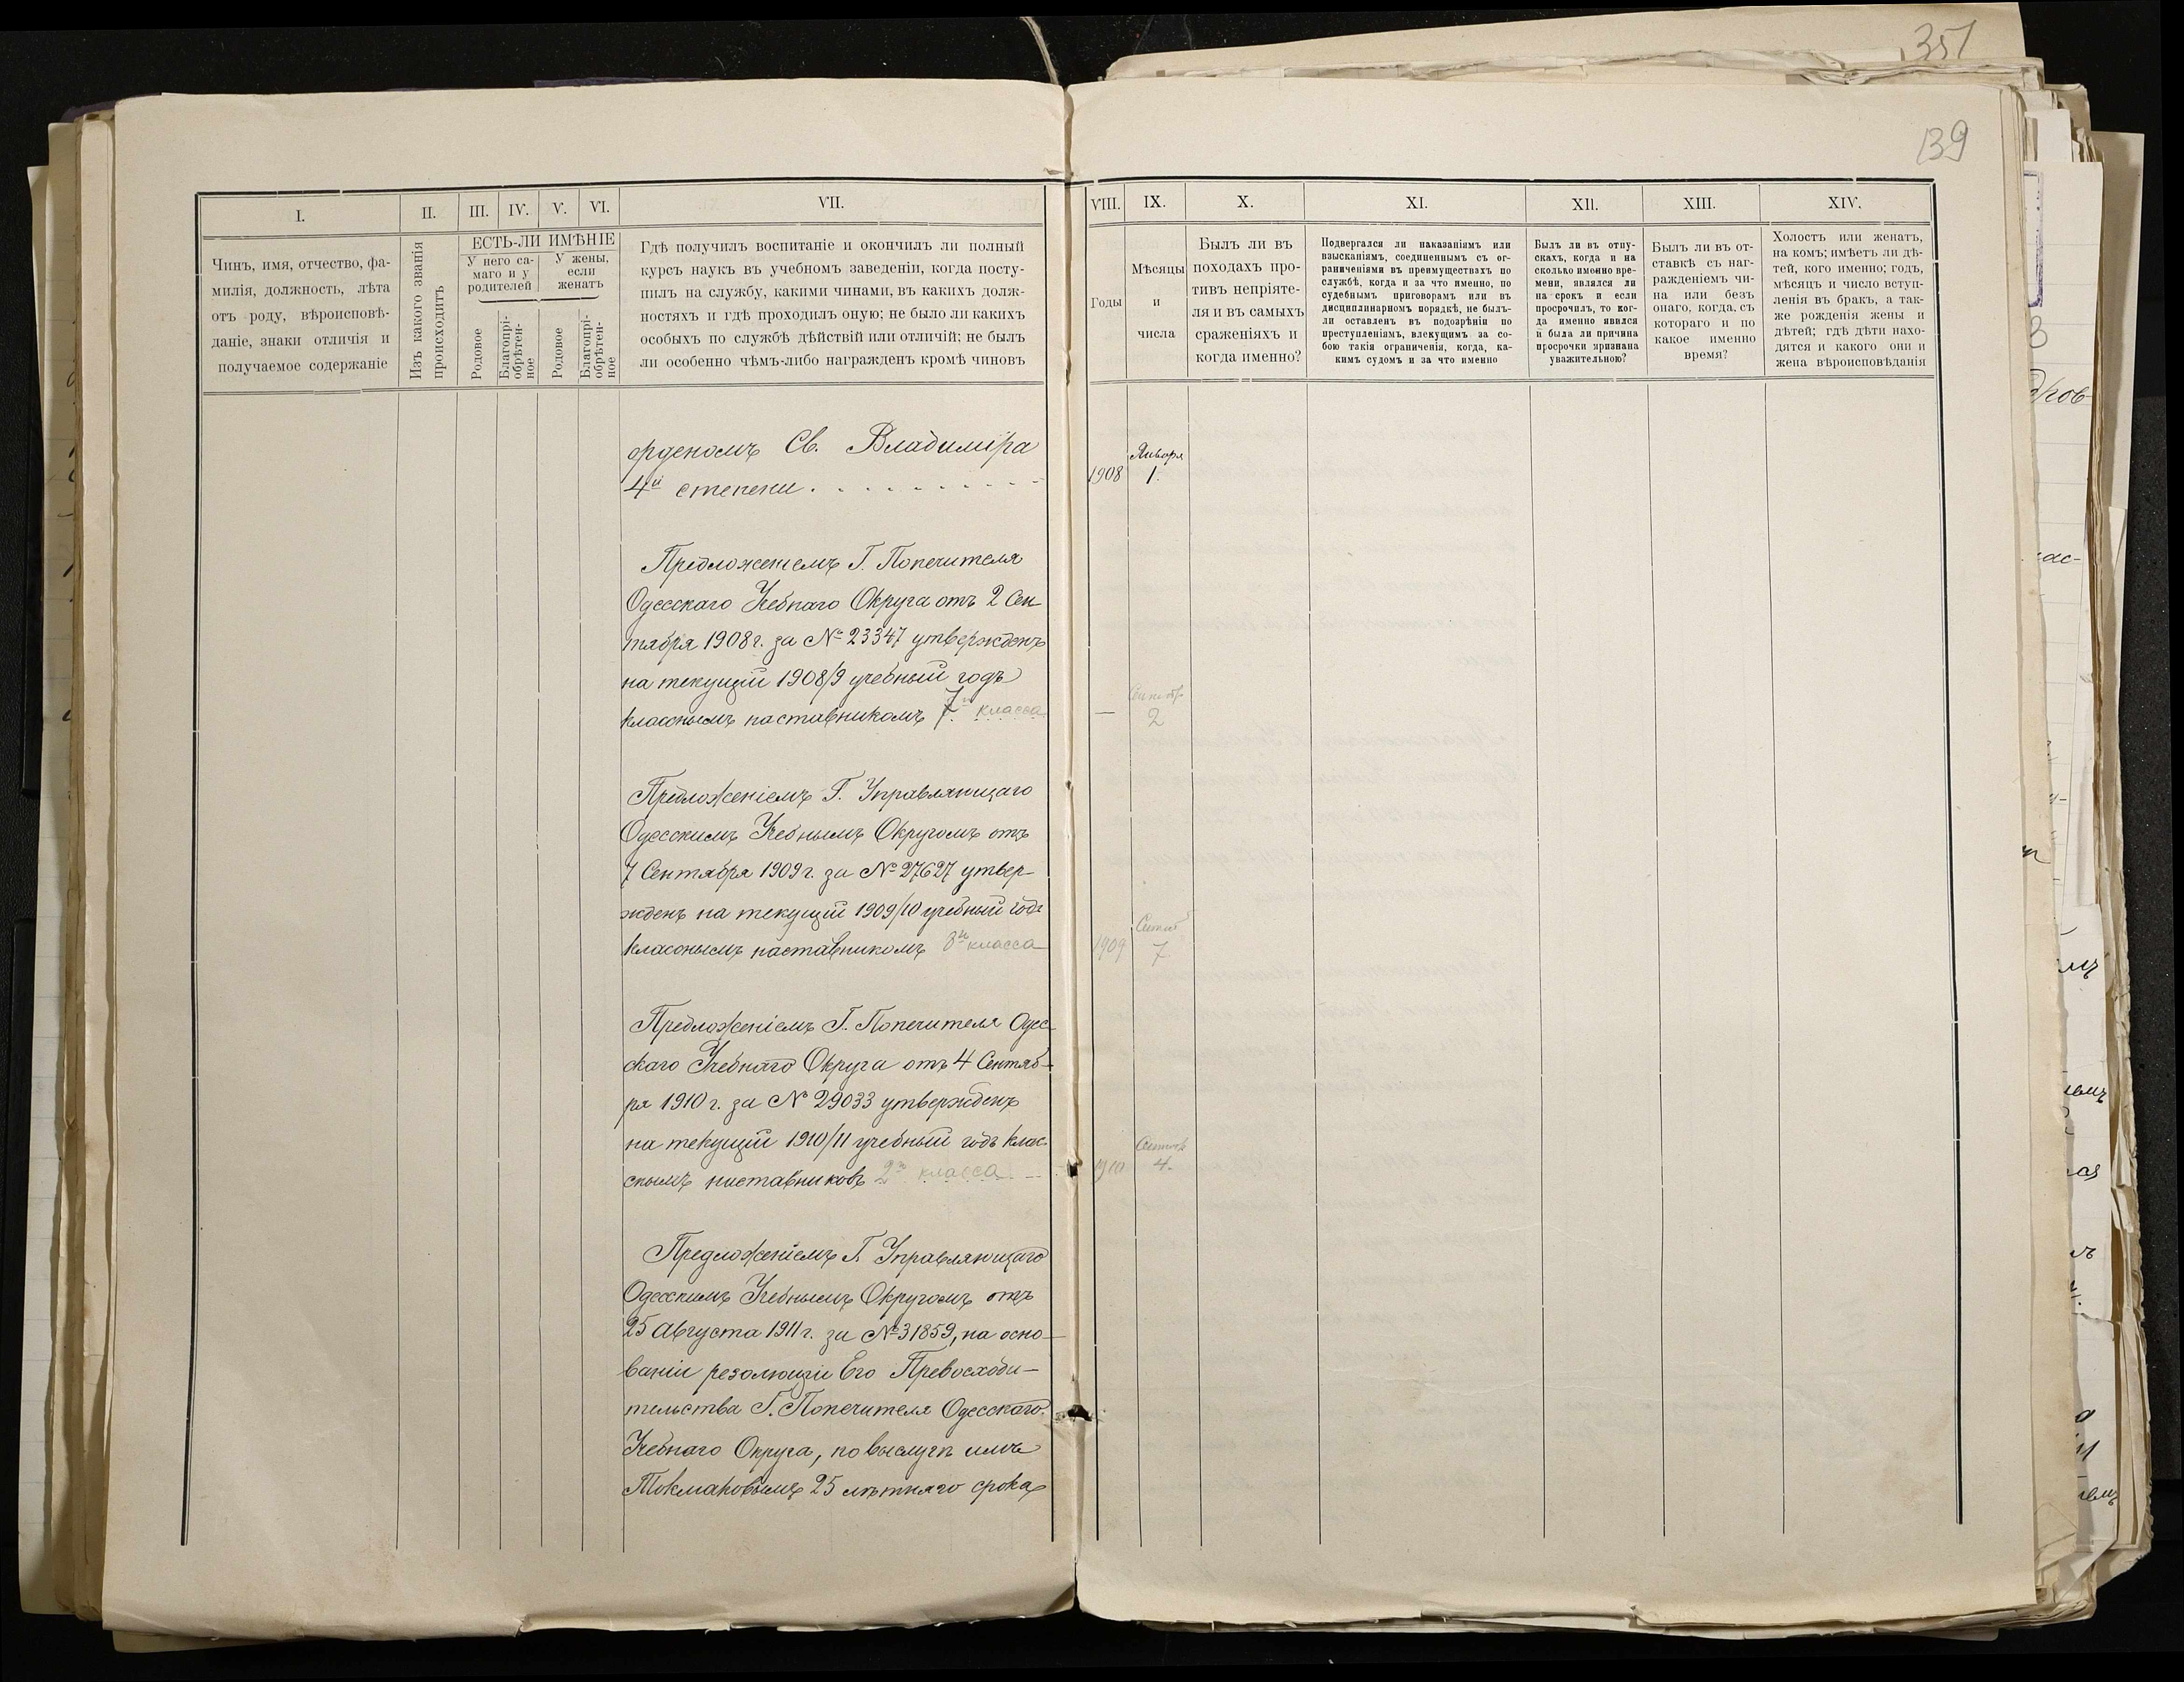 351
139
I.
II.
III.
IV.
V.
VI.
VII.
VIII.
IX.
X.
XI.
XII.
XIII.
XIV.
Чинъ, имя, отчество, фа-
милія, должность, лѣта
отъ роду, вѣроисповѣ-
даніе, знаки отличія и
получаемое содержаніе
Изъ какого званія
происходитъ
ЕСТЬ-ЛИ ИМѢНІЕ
У него са-
маго и у
родителей
У жены,
если
женатъ
Родовое
Благопрі-
обрѣтен-
ное
Родовое
Благопрі-
обрѣтен-
ное
Гдѣ получилъ воспитаніе и окончилъ ли полный
курсъ наукъ въ учебномъ заведеніи, когда посту-
пилъ на службу, какими чинами, въ какихъ долж-
ностяхъ и гдѣ проходилъ оную; не было ли какихъ
особыхъ по службѣ дѣйствій или отличій; не былъ
ли особенно чѣмъ-либо награжденъ кромѣ чиновъ
Годы
Мѣсяцы
и
числа
Былъ ли въ
походахъ про-
тивъ непріяте-
ля и въ самыхъ
сраженіяхъ и
когда именно?
Подвергался ли наказаніямъ или
взысканіямъ, соединеннымъ съ ог-
раниченіями въ преимуществахъ по
службѣ, когда и за что именно, по
судебнымъ приговорамъ или въ
дисциплинарномъ порядкѣ, не былъ-
ли оставленъ въ подозрѣніи по
преступленіямъ, влекущимъ за со-
бою такія ограниченія, когда, ка-
кимъ судомъ и за что именно
Былъ ли въ отпу-
скахъ, когда и на
сколько именно вре-
мени, являлся ли
на срокъ и если
просрочилъ, то ког-
да именно явился
и была ли причина
просрочки признана
уважительною?
Былъ ли въ от-
ставкѣ съ наг-
ражденіемъ чи-
на или безъ
онаго, когда, съ
котораго и по
какое именно
время?
Холостъ или женатъ,
на комъ; имѣетъ ли дѣ-
тей, кого именно; годъ,
мѣсяцъ и число вступ-
ленія въ бракъ, а так-
же рожденія жены и
дѣтей; гдѣ дѣти нахо-
дятся и какого они и
жена вѣроисповѣданія
орденомъ Св. Владиміра
4й степени . . . . . . . . . .
1908
Января
1.
Предложеніемъ Г. Попечителя
Одесскаго Учебнаго Округа отъ 2 Сен
тября 1908 г. за № 23347 утвержденъ
на текущій 1908/9 учебный годъ
класснымъ наставникомъ 7го класса
—
Сентяб
2
Предложеніемъ Г. Управляющаго
Одесскимъ Учебнымъ Округомъ отъ
7 Сентября 1909 г. за № 27627 утвер-
жденъ на текущій 1909/10 учебный годъ
класснымъ наставникомъ 8го класса
1909
Сентяб
7
Предложеніемъ Г. Попечителя Одес-
скаго Учебнаго Округа отъ 4 Сентяб-
ря 1910 г. за № 29033 утвержденъ
на текущій 1910/11 учебный годъ клас
снымъ наставниковъ 2го класса
1910
Сентяб
4.
Предложеніемъ Г. Управляющаго
Одесскимъ Учебнымъ Округомъ отъ
25 Августа 1911 г. за № 31859, на осно-
ваніи резолюціи Его Превосходи-
тельства Г. Попечителя Одесскаго
Учебнаго Округа, по выслугѣ имъ
Токмаковымъ 25 лѣтняго срока